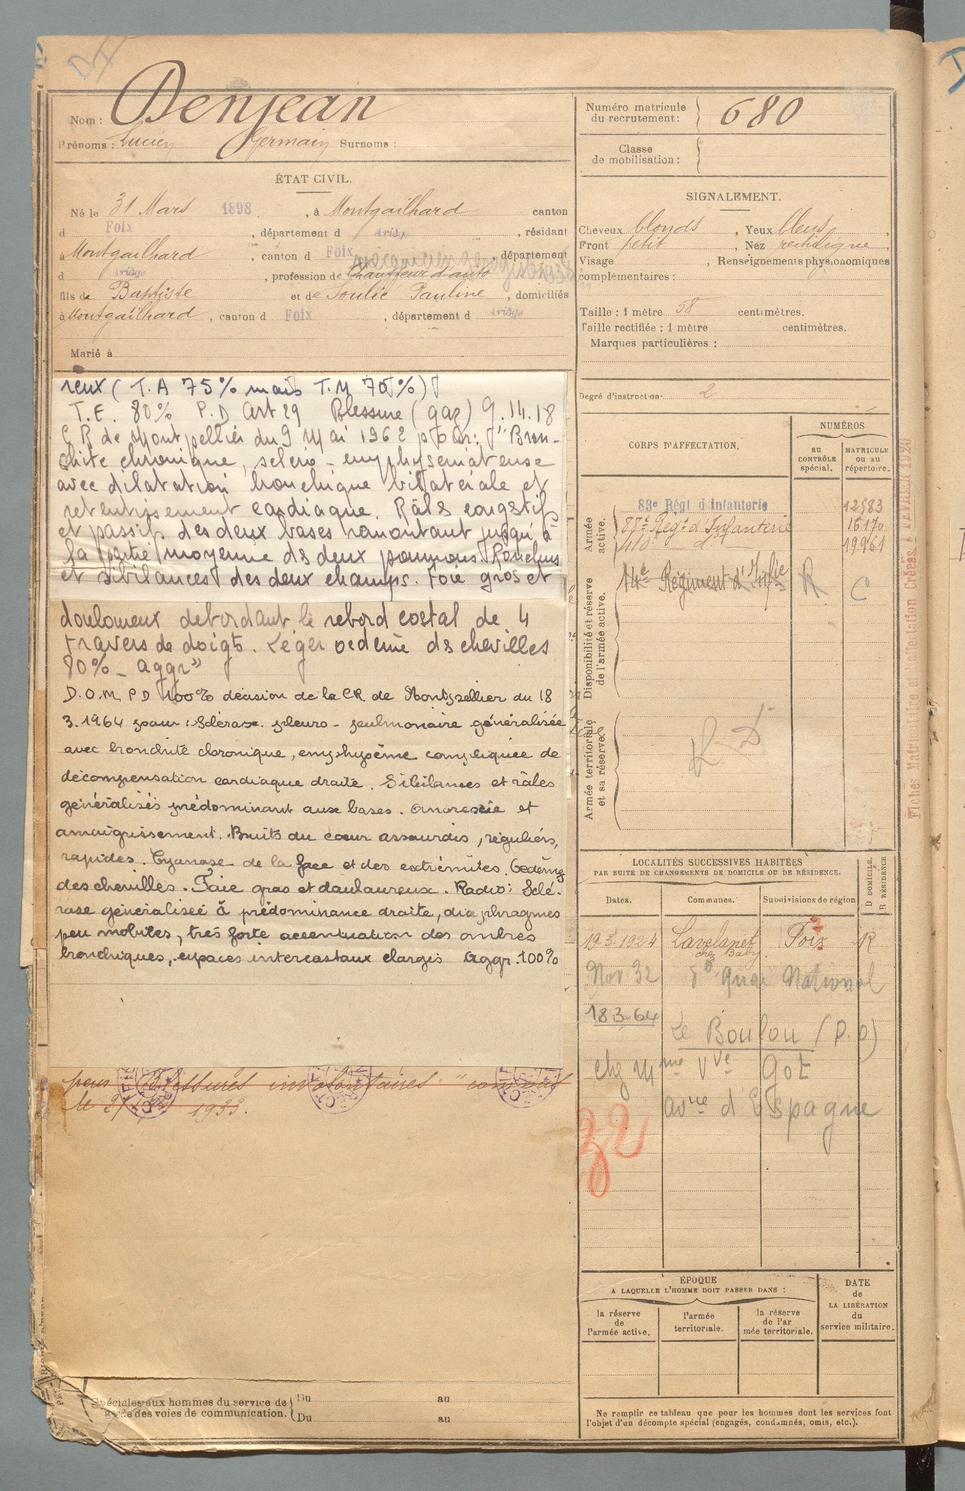 Nom : Denjean
Prénoms : Lucien Germain Surnoms :
ÉTAT CIVIL.
Né le 31 Mars 1898, à Montgailhard canton
d Foix, département d Ariège, résidant
à Montgailhard, canton d Foix, département
d Ariège, profession de Chauffeur d'auto
fils de Baptiste et de Soulié Pauline, domiciliés
à Montgailhard, canton d Foix, département d Ariège
Marié à
reux (T.A 75% mais T.M 70%)
T.E. 80% P.D Art 29 Blessure (gaz) 9.14.18
C R de Montpellier du 9 Mai 1962 pour: "Bron-
chite chronique, scléro-emphysémateuse
avec dilatation bronchique bilatérale et
retentissement cardiaque. Râles congestifs
et passifs des deux bases remontant jusqu'à
la partie moyenne ds deux poumons. Ronchus
et sibilances des deux champs. Foie gros et
douloureux débordant le rebord costal de 4
travers de doigts. Léger oedème ds chevilles
80% - Aggr"
D.O.M. P D 100% décision de la CR de Montpellier du 18
3.1964 pour : Sclérose pleuro-pulmonaire généralisée
avec bronchite chronique, emphysème compliquée de
décompensation cardiaque droite. Sibilances et râles
généralisés prédominant aux bases. Anorexie et
amaigrissement. Bruits du cœur assourdis, réguliers,
rapides. Cyanose de la face et des extrémités. Oedème
des chevilles. Foie gros et douloureux. Radio: Sclé-
rose généralisée à prédominance droite, diaphragmes
peu mobiles, très forte accentuation des ombres
bronchiques, espaces intercostaux élargis Aggr. 100%
pour "Blessures involontaires" commis
le 1933.
Spéciales aux hommes du service de
garde des voies de communication.
Du au
Du au
Numéro matricule
du recrutement : 680
Classe
de mobilisation :
SIGNALEMENT.
Cheveux blonds, Yeux bleus,
Front petit, Nez rectiligne
Visage Renseignements physionomiques
complémentaires :
Taille : 1 mètre 58 centimètres.
Taille rectifiée : 1 mètre centimètres.
Marques particulières :
Degré d'instruction 2
CORPS D'AFFECTATION.
NUMÉROS
au
CONTRÔLE
spécial.
MATRICULE
ou au
répertoire.
Armée
active.
83e Régt d'Infanterie 12583
87e Régt d'Infanterie 16170
410e d° 19961
Disponibilité et réserve
de l'armée active.
14e Régiment d'Infie R C
Armée territoriale
et sa réserve.
R D
LOCALITÉS SUCCESSIVES HABITÉES
PAR SUITE DE CHANGEMENTS DE DOMICILE OU DE RÉSIDENCE.
Dates. Communes. Subdivisions de région
D DOMICILE
R RÉSIDENCE
19.3.1924 Lavelanet Foix R
chez Baby
Nov. 32 National
18.3.64 Le Boulou (P.O)
chez Mme Vve Got
avue d'Espagne
ÉPOQUE
A LAQUELLE L'HOMME DOIT PASSER DANS :
la réserve
de
l'armée active.
l'armée
territoriale.
la réserve
de l'ar
mée territoriale.
DATE
de
LA LIBÉRATION
du
service militaire.
Ne remplir ce tableau que pour les hommes dont les services font
l'objet d'un décompte spécial (engagés, condamnés, omis, etc.).